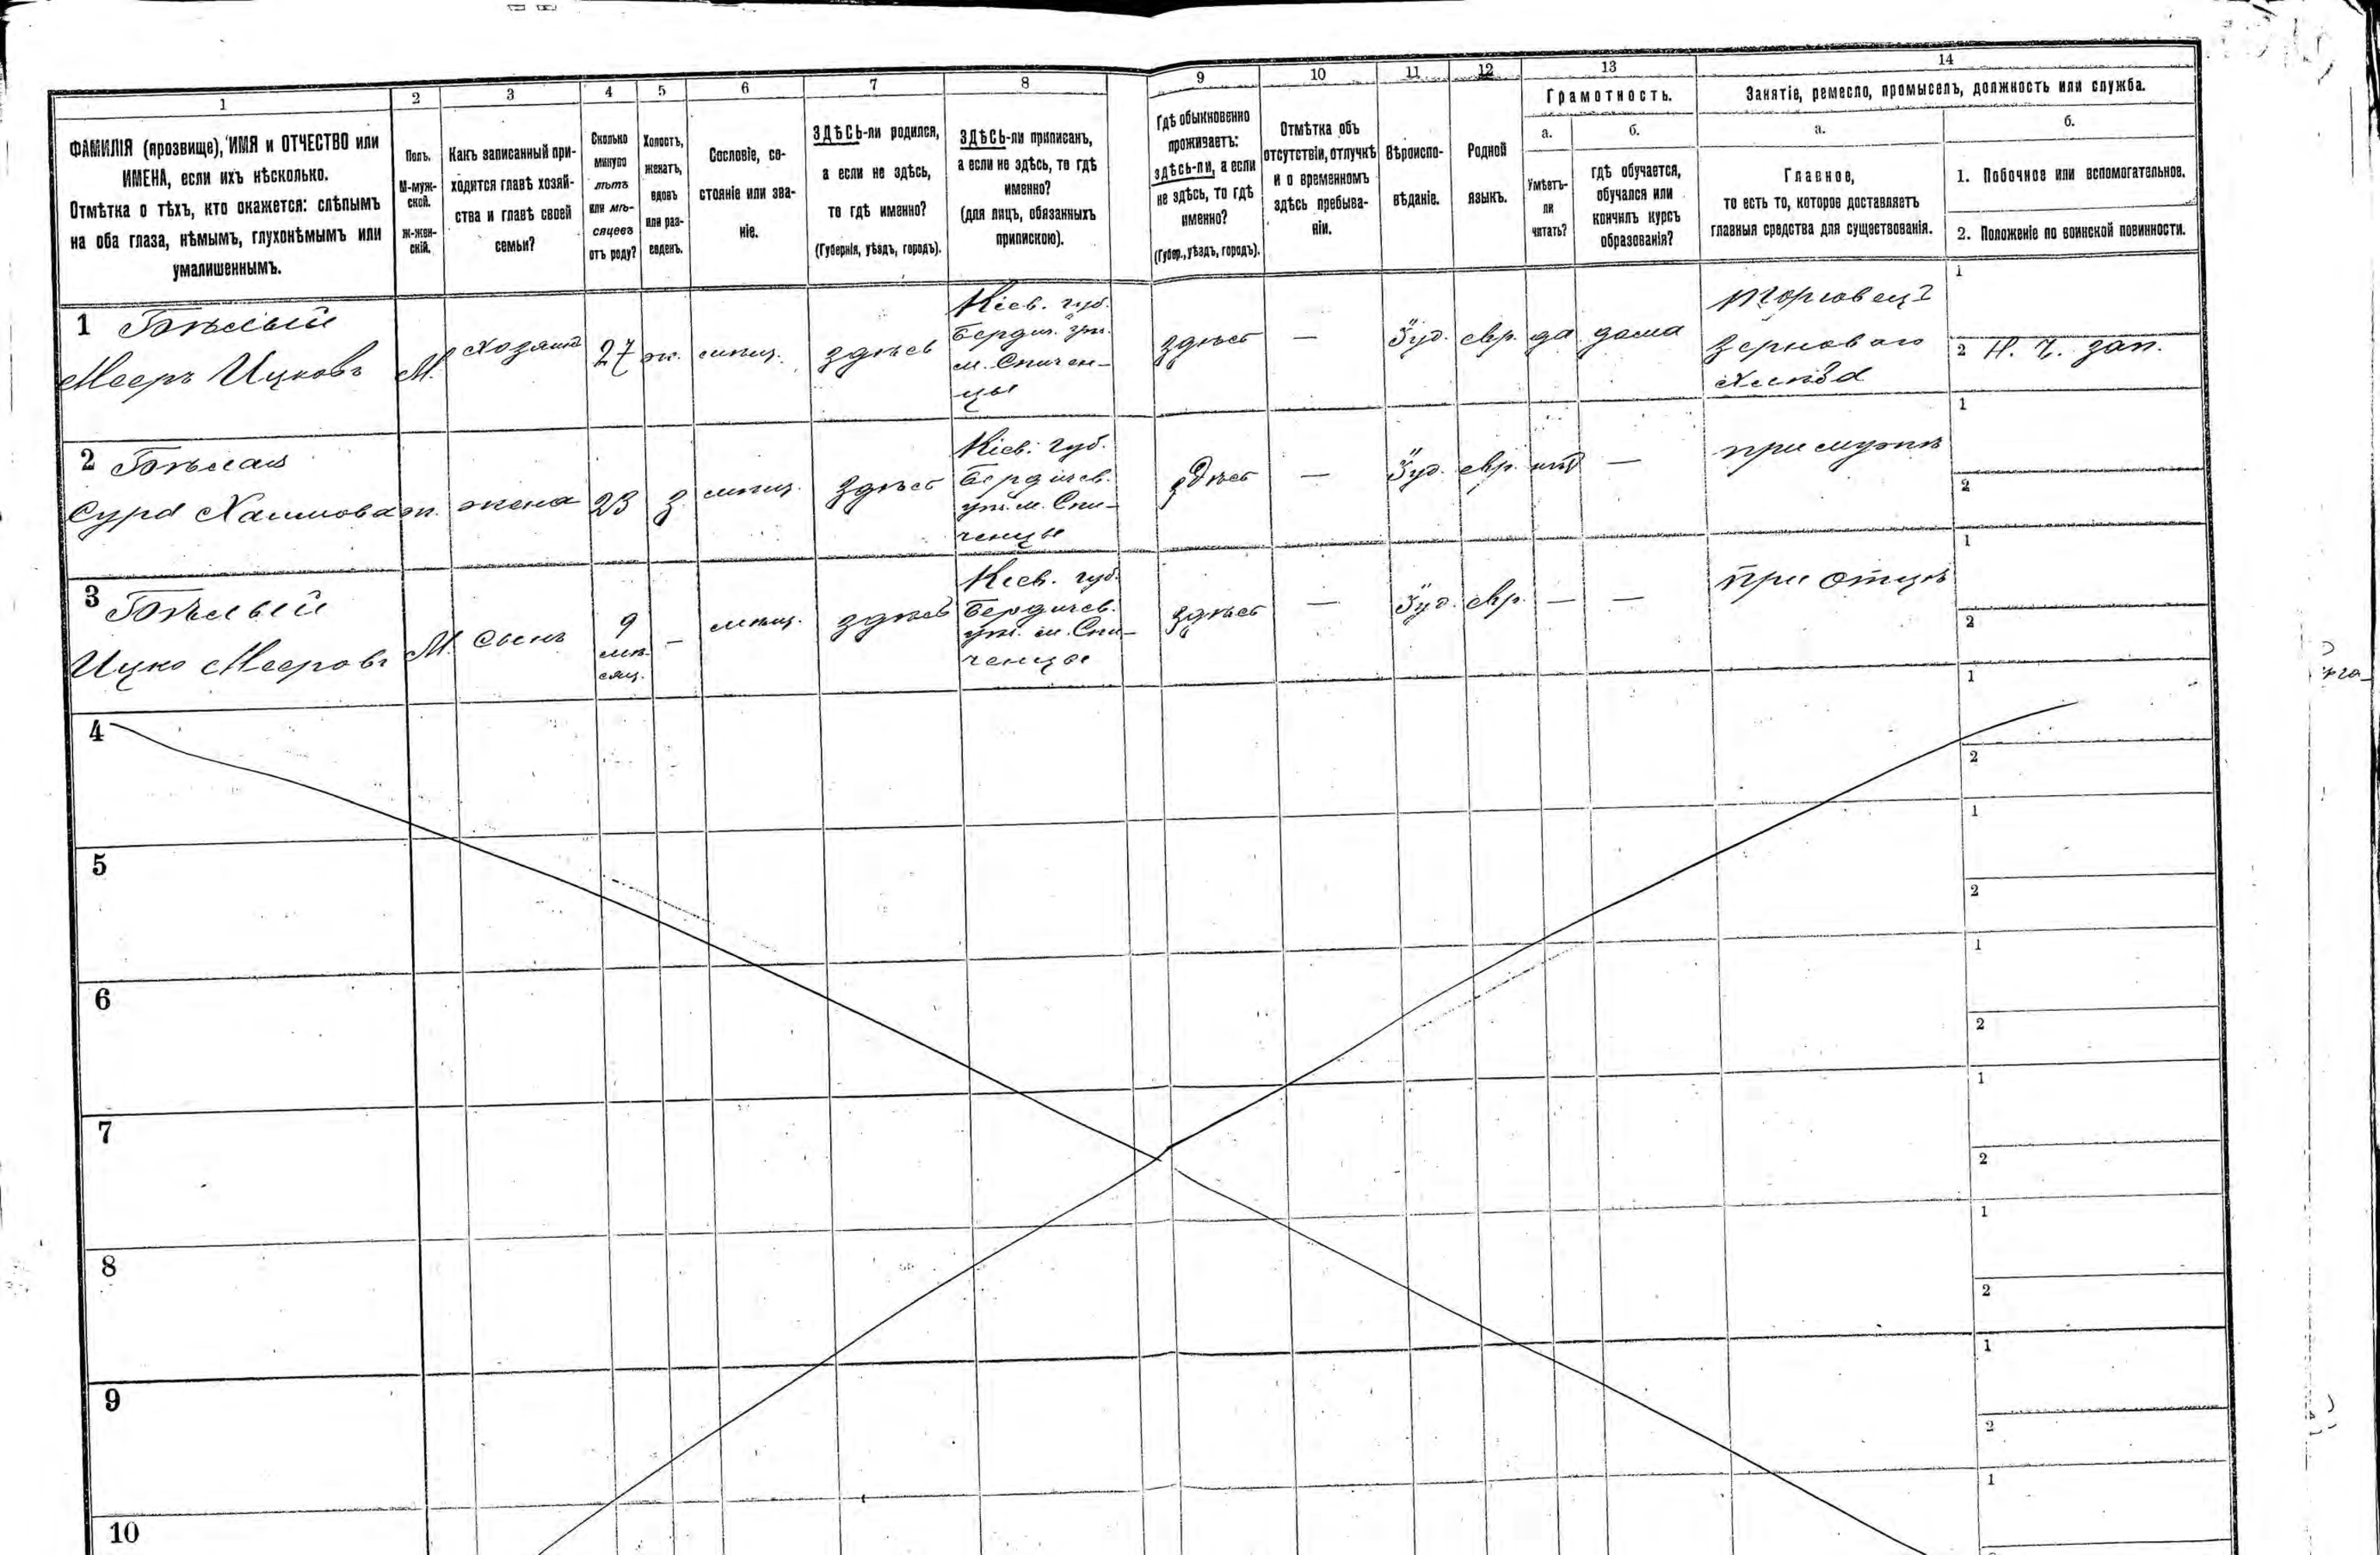 1 2 3 4 5 6 7 8 9 10 11 12 13 14
ФАМИЛІЯ (прозвище), ИМЯ и ОТЧЕСТВО или
ИМЕНА, если ихъ нѣсколько.
Отмѣтка о тѣхъ, кто окажется: слѣпымъ
на оба глаза, нѣмымъ, глухонѣмымъ или
умалишеннымъ.
Полъ.
М-муж-
ской.
Ж-жен-
скій.
Какъ записанный при-
ходится главѣ хозяй-
ства и главѣ своей
семьи?
Сколько
минуло
лѣтъ
или мѣ-
сяцевъ
отъ роду?
Холостъ,
женатъ,
вдовъ
или раз-
веденъ.
Сословіе, со-
стояніе или зва-
ніе.
ЗДѢСЬ-ли родился,
а если не здѣсь,
то гдѣ именно?
(Губернія, уѣздъ, городъ).
ЗДѢСЬ-ли приписан,
а если не здѣсь, то гдѣ
именно?
(для лицъ, обязанныхъ
припискою).
Гдѣ обыкновенно
проживаетъ:
здѣсь-ли, а если
не здѣсь, то гдѣ
именно?
(Губер., уѣздъ, городъ).
Отмѣтка объ
отсутствіи, отлучкѣ
и о временномъ
здѣсь пребыва-
ніи.
Вѣроиспо-
вѣданіе.
Родной
языкъ.
Грамотность.
а.
Умѣетъ-
ли
читать?
б.
гдѣ обучается,
обучался или
кончилъ курсъ
образованія?
Занятіе, ремесло, промыселъ, должность или служба.
а.
Главное,
то есть то, которое доставляетъ
главныя средства для существованія.
б.
1. Побочное или вспомогательное.
2. Положеніе по воинской повинности.
1 Бѣлый
Мееръ Ицковъ
М.
хозяинъ
27
ж.
мѣщ.
здѣсь
Кіев. губ.
Бердич. уѣз.
м. Спичен-
цы
здѣсь
—
Іуд.
евр.
да
дома
торговецъ
зерноваго
хлѣба
1
2 Н. Ч. зап.
2 Бѣлая
Сура Хаимова
ж.
жена
23
з.
мѣщ.
здѣсь
Кіев. губ.
Бердичев.
уѣз. м. Спи-
ченцы
здѣсь
—
Іуд.
евр.
нѣт
—
при мужѣ
1
2
3 Бѣлый
Ицко Мееровъ
М.
сынъ
9
мѣ-
сяц.
—
мѣщ.
здѣсь
Кіев. губ.
Бердичев.
уѣз. м. Спи-
ченцы
здѣсь
—
Іуд.
евр.
—
—
при отцѣ
1
2
4
1
2
5
1
2
6
1
2
7
1
2
8
1
2
9
1
2
10
1